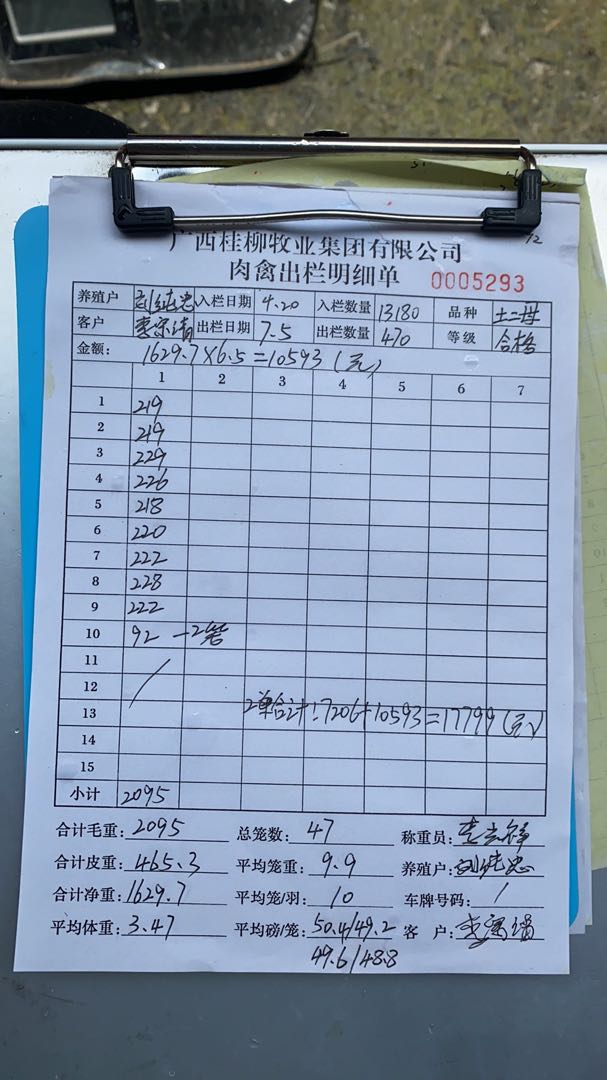 广西桂柳牧业集团有限公司
肉禽出栏明细单 0005293
养殖户 刘纯忠 入栏日期 4.20 入栏数量 13180 品种 土二母
客户 出栏日期 7.5 出栏数量 470 等级 合格
金额: 1629.7×6.5=10593(元)
1 2 3 4 5 6 7
1 219
2 219
3 229
4 226
5 218
6 220
7 222
8 228
9 222
10 92 —2笼
11
12
13 2单合计:7206+10593=17799(元)
14
15
小计 2095
合计毛重: 2095 总笼数: 47 称重员:
合计皮重: 465.3 平均笼重: 9.9 养殖户: 刘纯忠
合计净重: 1629.7 平均笼/羽: 10 车牌号码: /
平均体重: 3.47 平均磅/笼: 50.4/49.2 客 户:
49.6/48.8